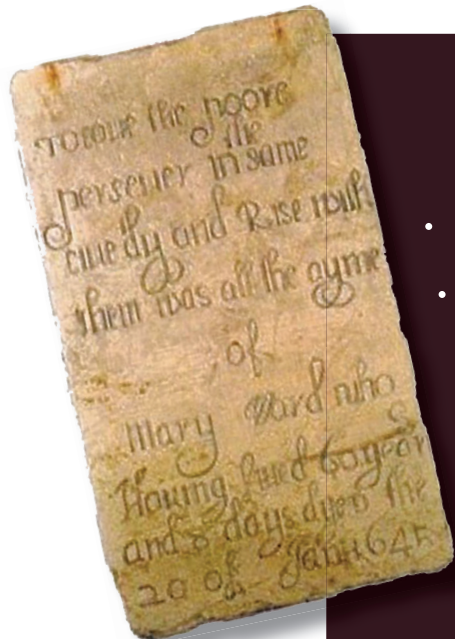 TO loue the poore
the
perseuer in same
Liue dy and Rise with
them was all the ayme
of
Mary Ward who
Hauing liued 60 years
and 8 days dyed the
20 of Jan 1645